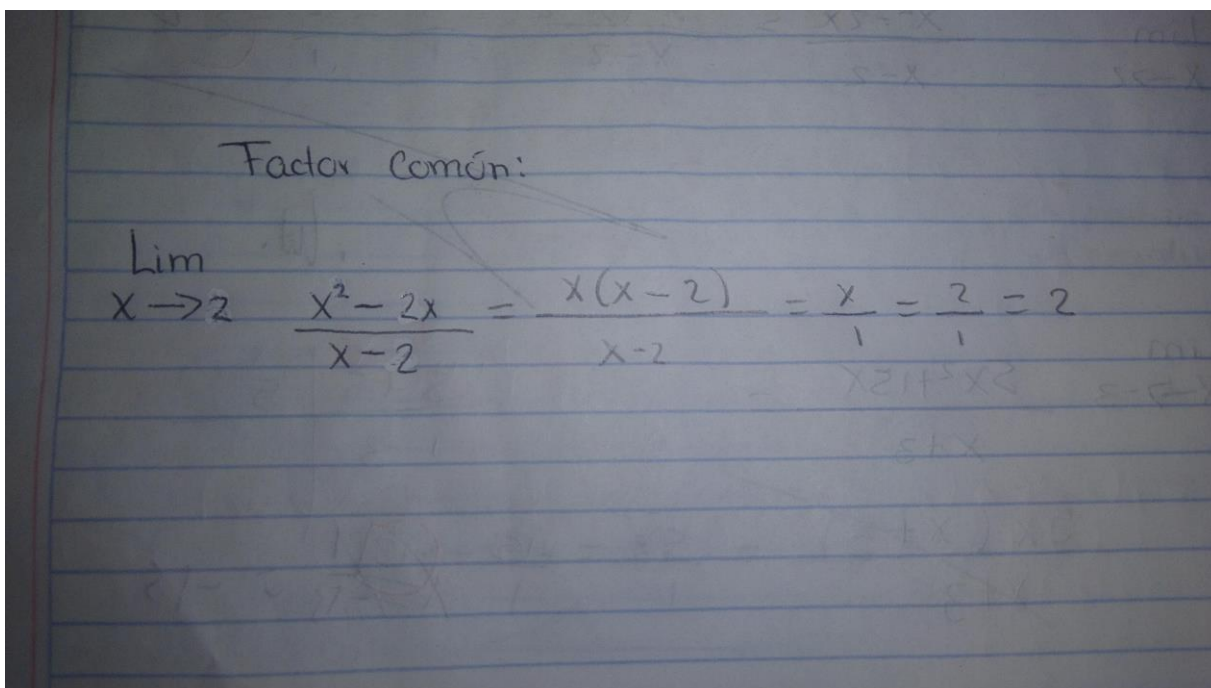 Factor Común:
Lim
x→2 x² - 2x / x - 2 = x(x - 2) / x - 2 = x / 1 = 2 / 1 = 2